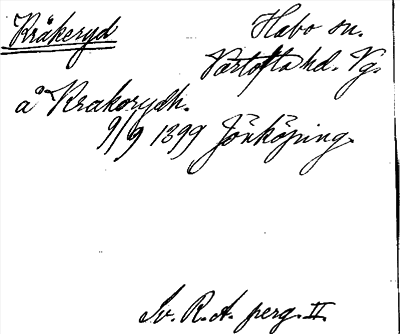 Kråkeryd
Habo sn.
Vartofta hd. Vg.
a° Krakorydh.
9/9 1399 Jönköping.
Sv. R. A. perg. II.